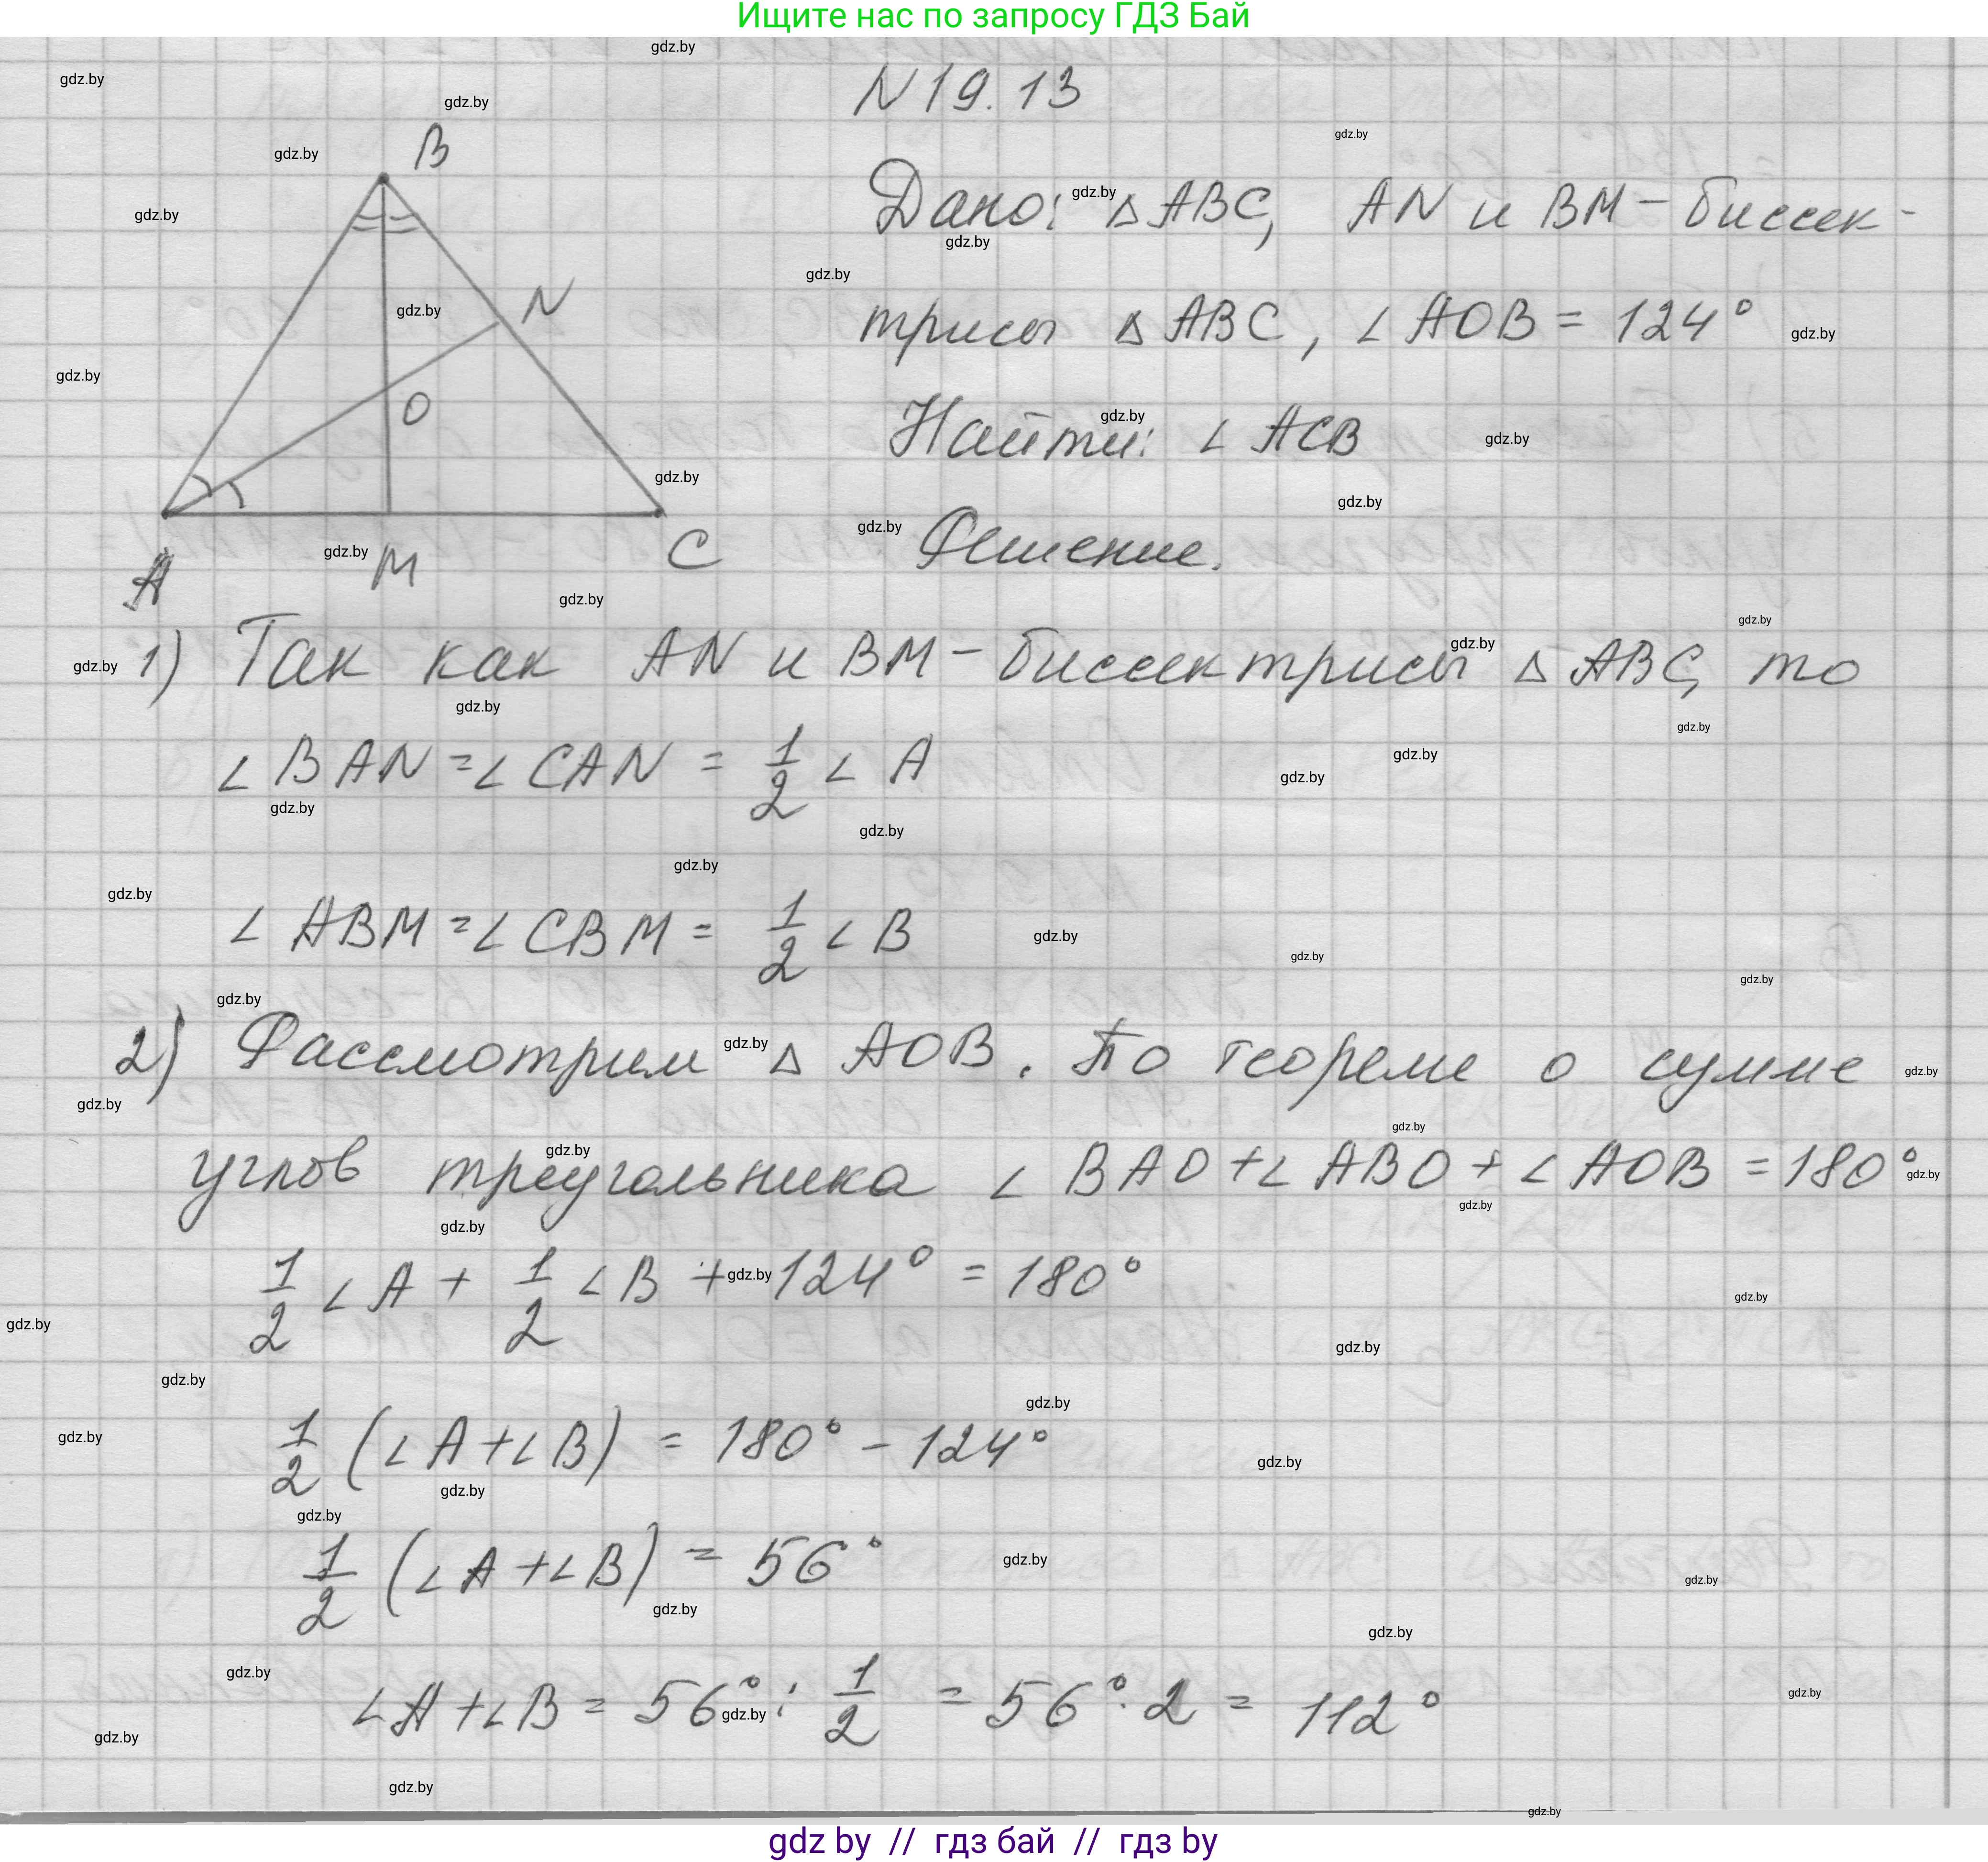 Ищите нас по запросу ГДЗ Бай
N 19.13
Дано: △ ABC, AN и BM – биссек-
трисы △ ABC, ∠ AOB = 124°
Найти: ∠ ACB
Решение.
B
N
O
A
M
C
1) Так как AN и BM – биссектрисы △ ABC, то
∠ BAN = ∠ CAN = 1/2 ∠ A
∠ ABM = ∠ CBM = 1/2 ∠ B
2) Рассмотрим △ AOB. По теореме о сумме
углов треугольника ∠ BAO + ∠ ABO + ∠ AOB = 180°
1/2 ∠ A + 1/2 ∠ B + 124° = 180°
1/2 (∠ A + ∠ B) = 180° – 124°
1/2 (∠ A + ∠ B) = 56°
∠ A + ∠ B = 56° : 1/2 = 56° · 2 = 112°
gdz.by
gdz by // гдз бай // гдз by